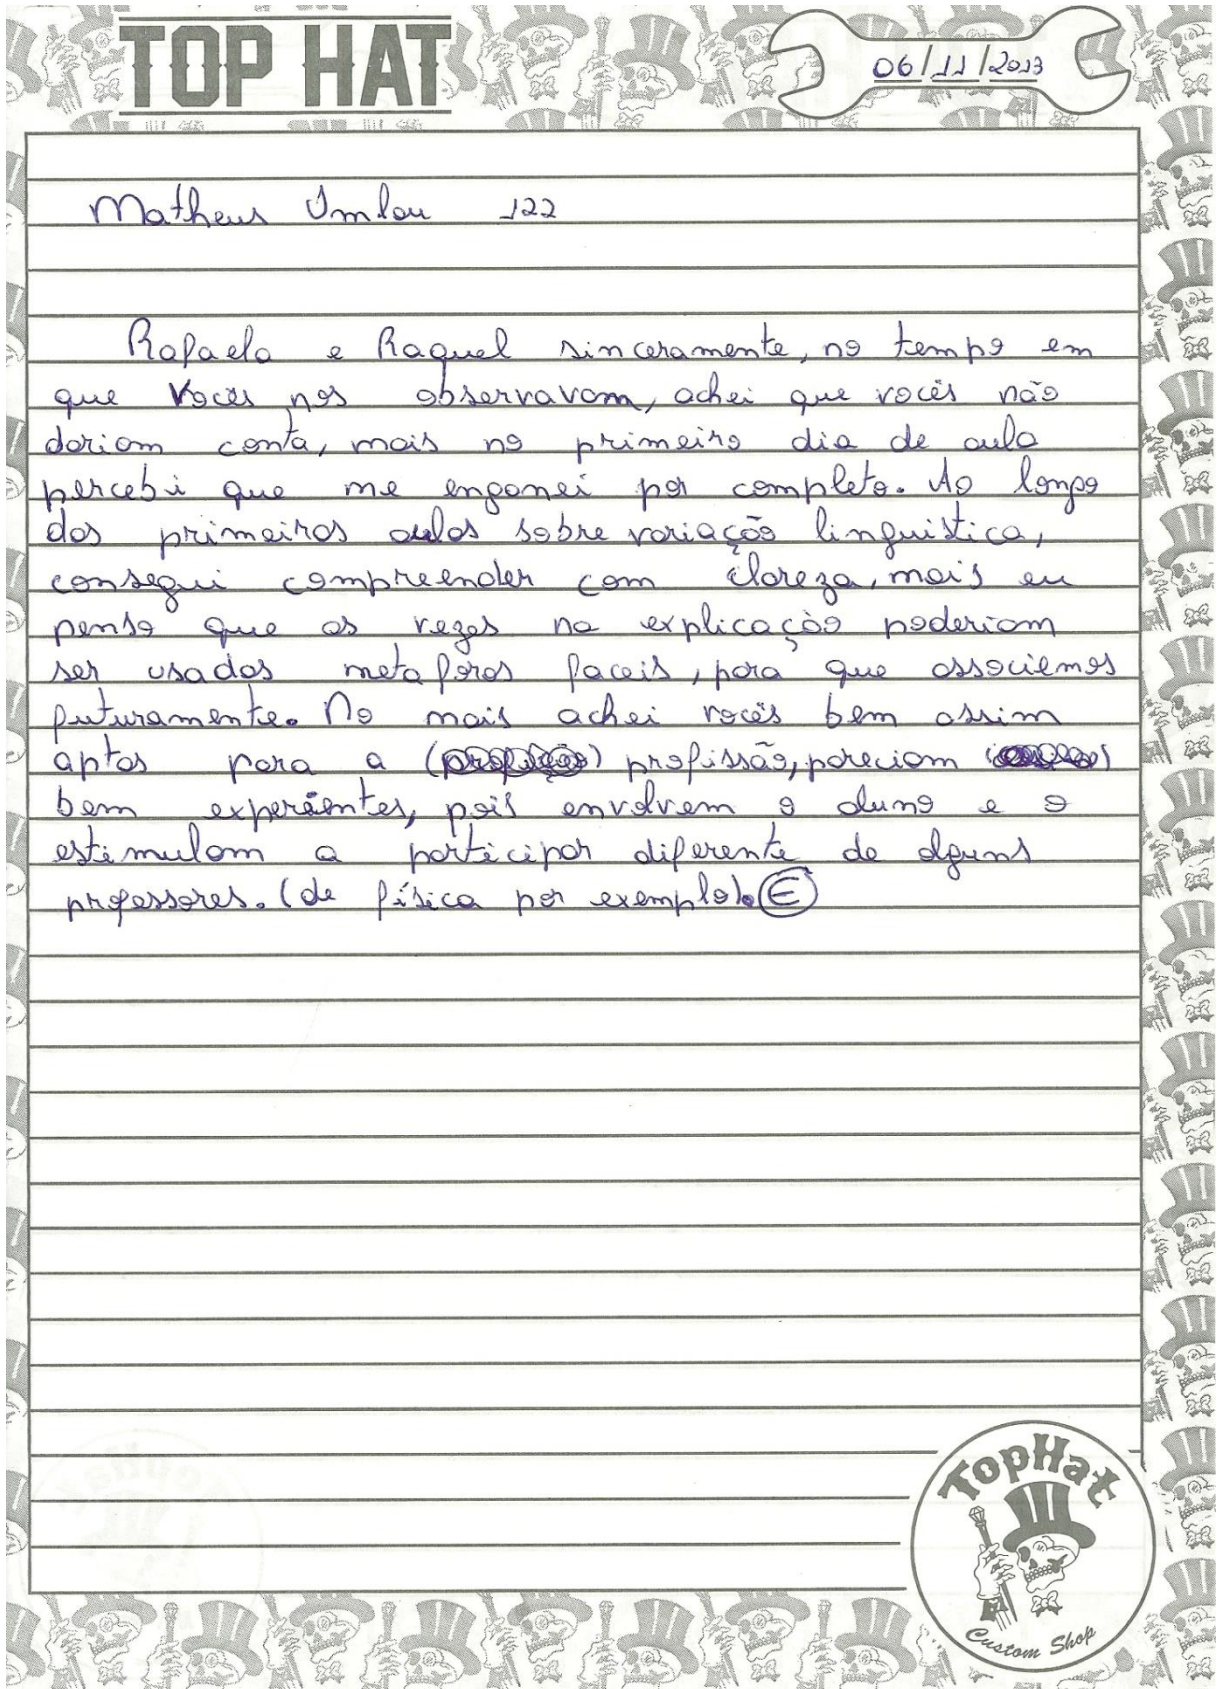 TOP HAT
06/11/2013
Matheus 122
Rafaela e Raquel sinceramente, no tempo em
que vocês nos observavam, achei que vocês não
dariam conta, mais no primeiro dia de aula
percebi que me enganei por completo. Ao longo
das primeiras aulas sobre variação linguística,
consegui compreender com clareza, mais eu
penso que as vezes na explicação poderiam
ser usados metaforas faceis, para que associemos
futuramente. No mais achei vocês bem assim
aptas para a profissão, pareciam
bem experientes, pois envolvem o aluno e o
estimulam a participar diferente de alguns
professores. (de física por exemplo).
TopHat
Custom Shop